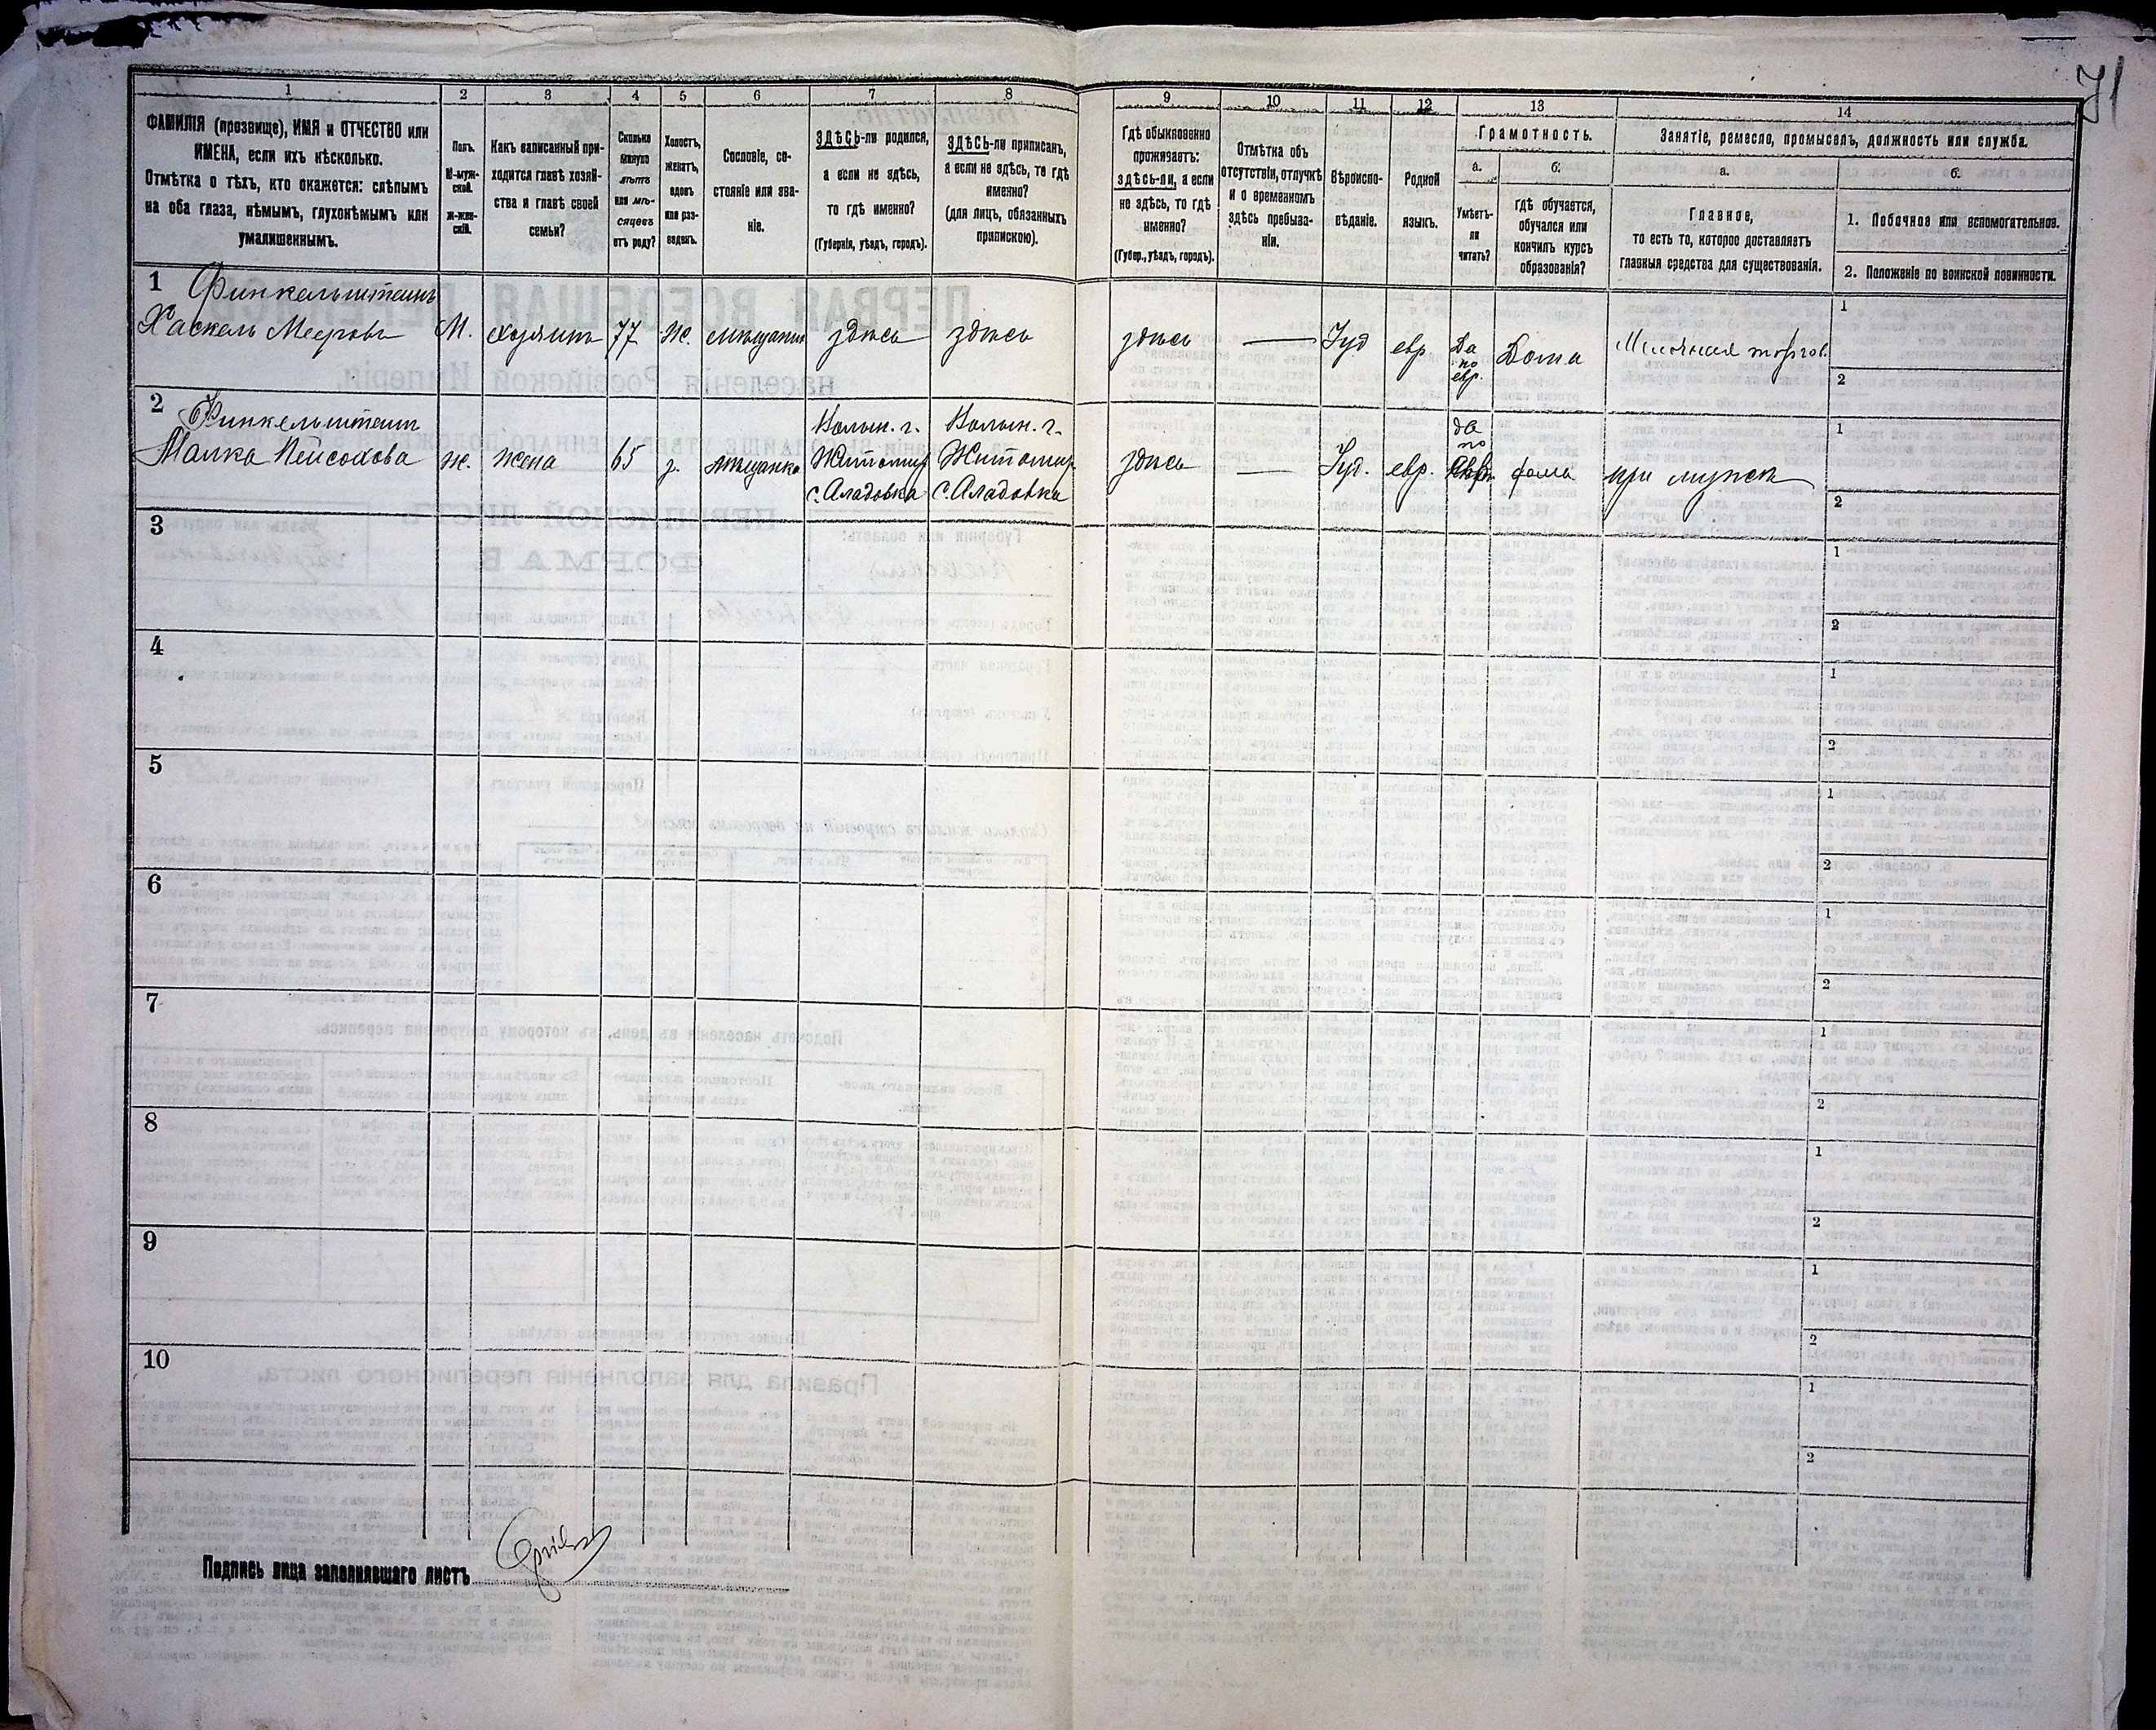 71
1 2 3 4 5 6 7 8 9 10 11 12 13 14
ФАМИЛІЯ (прозвище), ИМЯ и ОТЧЕСТВО или
ИМЕНА, если ихъ нѣсколько.
Отмѣтка о тѣхъ, кто окажется: слѣпымъ
на оба глаза, нѣмымъ, глухонѣмымъ или
умалишеннымъ.
Полъ.
М-муж-
ской.
ж-жен-
скій.
Какъ записанный при-
ходится главѣ хозяй-
ства и главѣ своей
семьи?
Сколько
минуло
лѣтъ
или мѣ-
сяцевъ
отъ роду?
Холостъ,
женатъ,
вдовъ
или раз-
веденъ.
Сословіе, со-
стояніе или зва-
ніе.
ЗДѢСЬ-ли родился,
а если не здѣсь,
то гдѣ именно?
(Губернія, уѣздъ, городъ).
ЗДѢСЬ-ли приписанъ,
а если не здѣсь, то гдѣ
именно?
(для лицъ, обязанныхъ
припискою).
Гдѣ обыкновенно
проживаетъ:
здѣсь-ли, а если
не здѣсь, то гдѣ
именно?
(Губер., уѣздъ, городъ).
Отмѣтка объ
отсутствіи, отлучкѣ
и о временномъ
здѣсь пребыва-
ніи.
Вѣроиспо-
вѣданіе.
Родной
языкъ.
Грамотность.
а.
Умѣетъ-
ли
читать?
б.
гдѣ обучается,
обучался или
кончилъ курсъ
образованія?
Занятіе, ремесло, промыселъ, должность или служба.
а.
Главное,
то есть то, которое доставляетъ
главныя средства для существованія.
б.
1. Побочное или вспомогательное.
2. Положеніе по воинской повинности.
1 Финкельштейнъ
Хаскель Мееровъ М. хозяинъ 77 Ж. мѣщанинъ здѣсь здѣсь здѣсь — Іуд евр Да по евр. Дома Мелочная торгов.
1
2
2 Финкельштейн
Малка Пейсохова ж. жена 65 з. мѣщанка
Волын. г.
Житомир
с. Аладовка
Волын. г.
Житомир.
с. Аладовка
здѣсь — Іуд. евр. да по дома при мужѣ
1
2
3
1
2
4
1
2
5
1
2
6
1
2
7
1
2
8
1
2
9
1
2
10
1
2
Подпись лица заполнившаго листъ